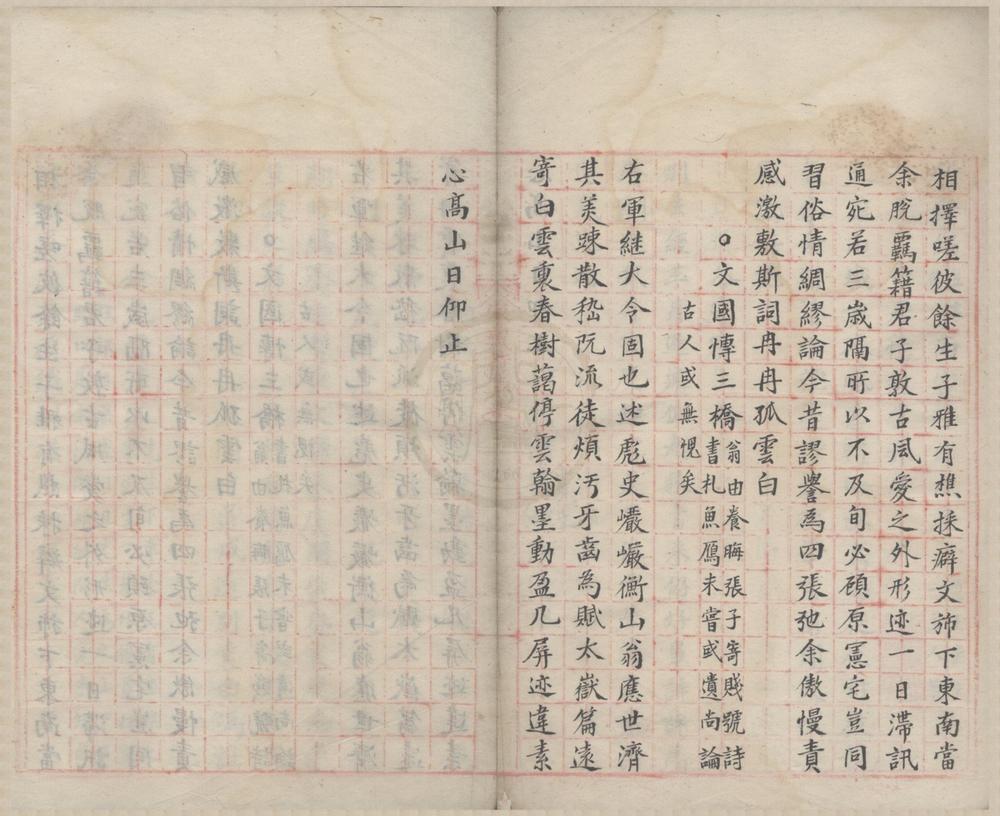 相擇嗟彼餘生子雅有樵採癖文斾下東南當
余脫羈籍君子敦古風愛之外形迹一日滯訊
通宛若三歲隔所以不及旬必顧原憲宅豈同
習俗情綢繆論今昔謬譽為四張弛余傲慢責
感激敷斯詞冉冉孤雲白
○文國博三橋翁由養晦張子寄賤號詩
書札魚鴈未嘗或遺尚論
古人或無愧矣
右軍継大令固也述彪史巗巗衡山翁應世濟
其美踈散嵇阮流徒煩汚牙齒為賦太嶽篇遠
寄白雲裏春樹藹停雲翰墨動盈几屏迹違素
心高山日仰止